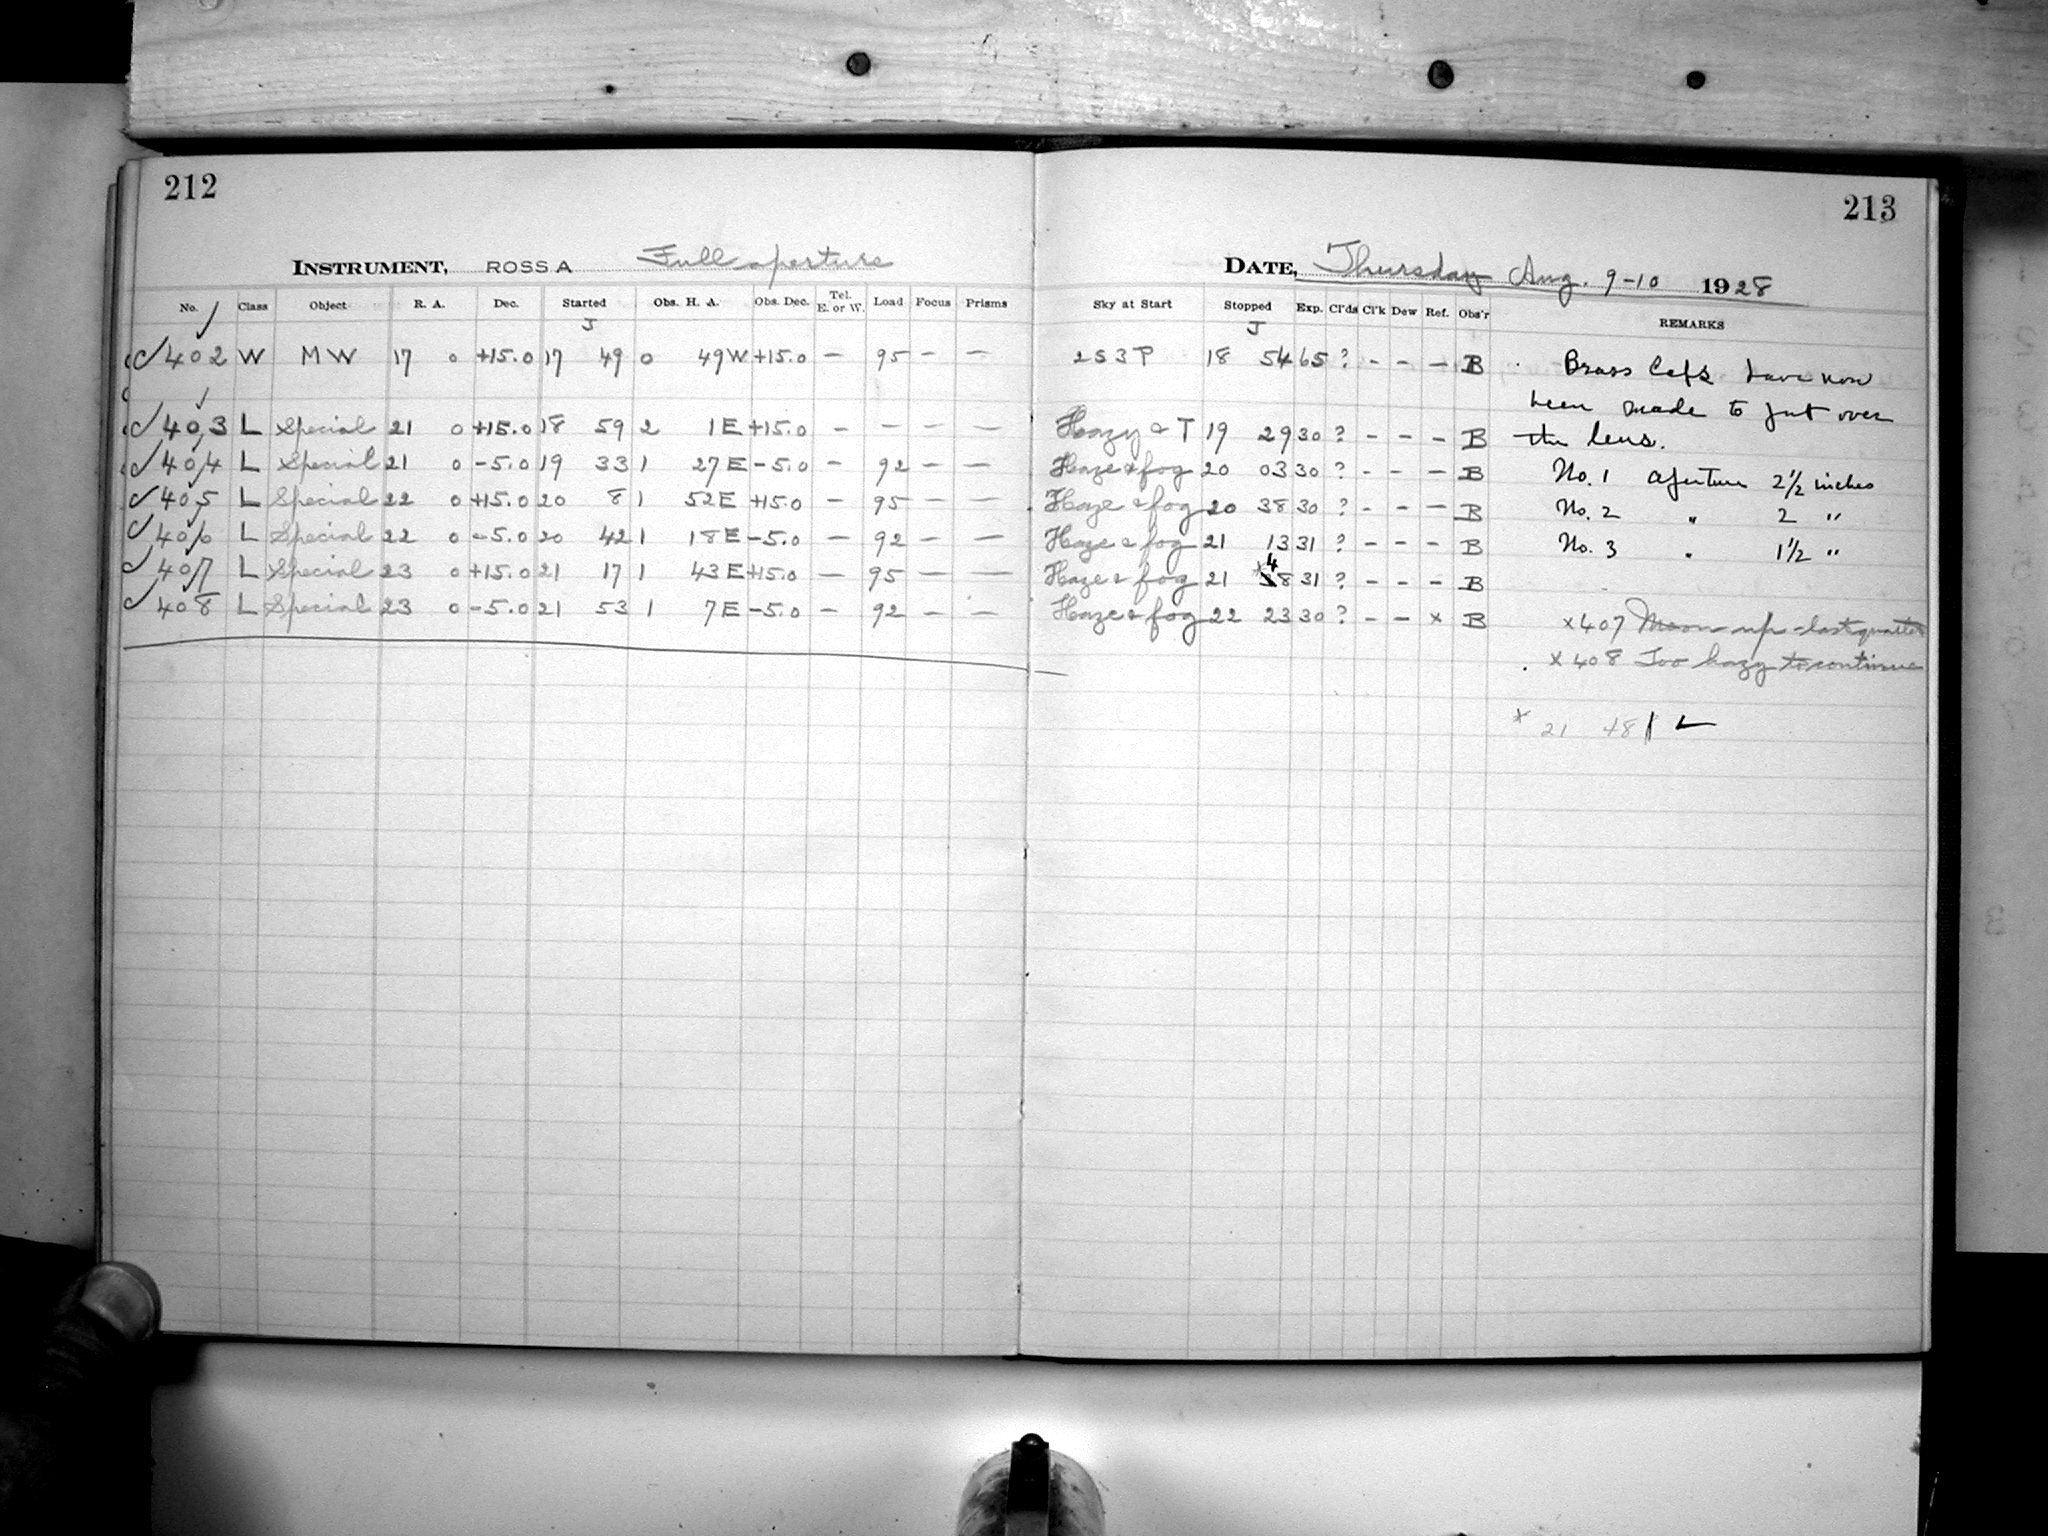 212
213
INSTRUMENT, ROSS A Full aperture
DATE, Thursday Aug. 9-10 1928
No. Class Object R. A. Dec. Started Obs. H. A. Obs. Dec. Tel. E. or W. Load Focus Prisms Sky at Start Stopped Exp. Cl'ds Cl'k Dew Ref. Obs'r REMARKS
J J
✓402 W MW 17 0 +15.0 17 49 0 49W +15.0 - 95 - - 2S3P 18 54 65 ? - - - B
✓403 L Special 21 0 +15.0 18 59 2 1E +15.0 - - - - Hazy & T 19 29 30 ? - - - B
✓404 L Special 21 0 -5.0 19 33 1 27E -5.0 - 92 - - Haze & fog 20 03 30 ? - - - B
✓405 L Special 22 0 +15.0 20 8 1 52E +15.0 - 95 - - Haze & fog 20 38 30 ? - - - B
✓406 L Special 22 0 -5.0 20 42 1 18E -5.0 - 92 - - Haze & fog 21 13 31 ? - - - B
✓407 L Special 23 0 +15.0 21 17 1 43E +15.0 - 95 - - Haze & fog 21 *48 31 ? - - - B
✓408 L Special 23 0 -5.0 21 53 1 7E -5.0 - 92 - - Haze & fog 22 23 30 ? - - x B
Brass Caps have now
been made to put over
the lens.
No. 1 aperture 2½ inches
No. 2 " 2 "
No. 3 " 1½ "
x407 Moon up - last quarter
x408 Too hazy to continue
* 21 48 | ✓